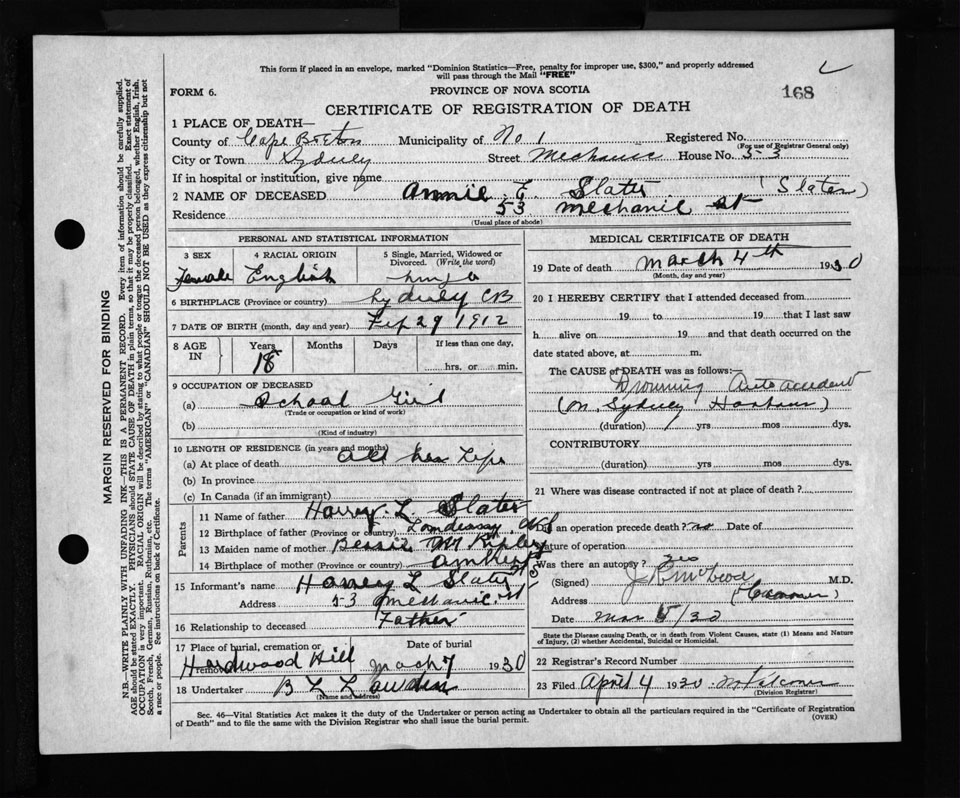 This form if placed in an envelope, marked "Dominion Statistics—Free, penalty for improper use, $300," and properly addressed
will pass through the Mail "FREE"
FORM 6.
PROVINCE OF NOVA SCOTIA
168
CERTIFICATE OF REGISTRATION OF DEATH
1 PLACE OF DEATH—
County of Cape Breton Municipality of No 1 Registered No.
(For use of Registrar General only)
City or Town Sydney Street Mechanic House No. 53
If in hospital or institution, give name
2 NAME OF DECEASED Annie E. Slater (Slater)
Residence 53 Mechanic St
(Usual place of abode)
PERSONAL AND STATISTICAL INFORMATION
3 SEX Female
4 RACIAL ORIGIN English
5 Single, Married, Widowed or Divorced. (Write the word)
6 BIRTHPLACE (Province or country) Sydney CB
7 DATE OF BIRTH (month, day and year) Feb 29 1912
8 AGE IN Years 18 Months Days If less than one day, hrs. or min.
9 OCCUPATION OF DECEASED
(a) School Girl
(Trade or occupation or kind of work)
(b)
(Kind of industry)
10 LENGTH OF RESIDENCE (in years and months)
(a) At place of death All her Life
(b) In province
(c) In Canada (if an immigrant)
Parents
11 Name of father Harvey L Slater
12 Birthplace of father (Province or country) NS
13 Maiden name of mother Bessie M
14 Birthplace of mother (Province or country) Amherst NS
15 Informant's name Harvey L Slater
Address 53 Mechanic St
16 Relationship to deceased Father
17 Place of burial, cremation or Removal Hardwood Hill
Date of burial March 7 1930
18 Undertaker B L
(Name and address)
MEDICAL CERTIFICATE OF DEATH
19 Date of death March 4th 1930
(Month, day and year)
20 I HEREBY CERTIFY that I attended deceased from
19 to 19 that I last saw
h alive on 19 and that death occurred on the
date stated above, at m.
The CAUSE of DEATH was as follows:—
Drowning Auto accident
(on Sydney Harbour)
(duration) yrs mos dys.
CONTRIBUTORY
(duration) yrs mos dys.
21 Where was disease contracted if not at place of death?
Did an operation precede death? no Date of
Nature of operation
Was there an autopsy? yes
(Signed) M.D.
Address (Coroner)
Date Mar 5/30
State the Disease causing Death, or in death from Violent Causes, state (1) Means and Nature
of Injury, (2) whether Accidental, Suicidal or Homicidal.
22 Registrar's Record Number
23 Filed April 4 1930
(Division Registrar)
Sec. 46—Vital Statistics Act makes it the duty of the Undertaker or person acting as Undertaker to obtain all the particulars required in the "Certificate of Registration
of Death" and to file the same with the Division Registrar who shall issue the burial permit.
(OVER)
MARGIN RESERVED FOR BINDING
N.B.—WRITE PLAINLY WITH UNFADING INK—THIS IS A PERMANENT RECORD. Every item of information should be carefully supplied.
AGE should be stated EXACTLY. PHYSICIANS should STATE CAUSE OF DEATH in plain terms, so that it may be properly classified. Exact statement of
OCCUPATION is very important. RACIAL ORIGIN will be described by stating to what people or tongue the deceased person belonged, whether English, Irish,
Scotch, French, German, Russian, Ruthenian, etc. The terms "AMERICAN" or "CANADIAN" SHOULD NOT BE USED as they express citizenship but not
a race or people. See instructions on back of Certificate.